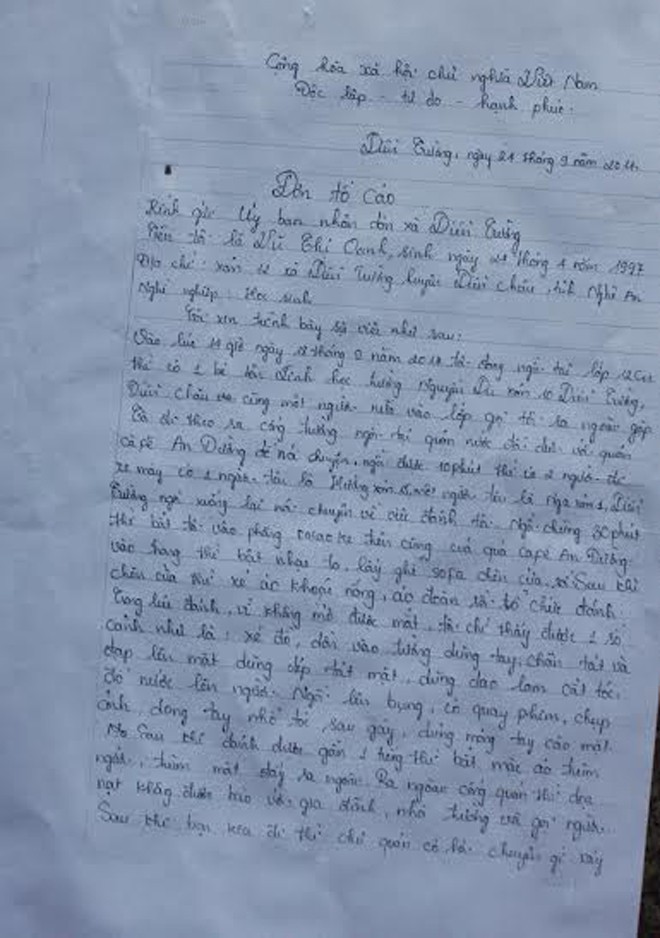 Cộng hòa xã hội chủ nghĩa Việt Nam
Độc lập - tự do - hạnh phúc.
Diễn Trường, ngày 21 tháng 9 năm 2014.
Đơn tố cáo
Kính gửi Ủy ban nhân dân xã Diễn Trường
Tên tôi là Vũ Thị Oanh, sinh ngày 21 tháng 1 năm 1997
Địa chỉ: xóm 12 xã Diễn Trường huyện Diễn Châu, tỉnh Nghệ An
Nghề nghiệp: Học sinh
Tôi xin trình bày sự việc như sau:
Vào lúc 14 giờ ngày 18 tháng 9 năm 2014 tôi đang ngồi tại lớp 12
thì có 1 bé tên Linh học trường Nguyễn Du xóm 10 Diễn Trường,
Diễn Châu và cùng một người nữa vào lớp gọi tôi ra ngoài gặp
Tôi đi theo ra cổng trường ngồi tại quán nước đối diện với quán
cà fê An Dương để nói chuyện, ngồi được 10 phút thì có 2 người đi
xe máy có 1 người tên là Hường xóm một người tên là Nga xóm 1, Diễn
Trường ngồi xuống lại nói chuyện về việc đánh tôi. Ngồi chừng 30 phút
thì bắt tôi vào phòng caraoke trên cùng của quán Cafê An Dương.
vào trong thì bật nhạc to, lấy ghế sofa chèn cửa, Sau khi
chèn cửa thì xé ác khoác nóng, áo đoàn rồi tổ chức đánh
Trong lúc đánh, vì không mở được mắt, tôi chỉ thấy được 1 số
cảnh như là: xé đồ, dồn vào tường dùng tay, chân tát và
đạp lên mặt dùng dép tát mặt, dùng dao lam cắt tóc,
đổ nước lên người. Ngồi lên bụng, có quay phim, chụp
ảnh dùng tay nhổ tóc sau gáy, dùng móng tay cào mặt
Sau khi đánh được gần 1 tiếng thì bắt mặc áo trùm
người, trùm mặt đẩy ra ngoài. Ra ngoài cổng quán thì đe
nạt không được báo với gia đình, nhà trường và gọi người.
Sau khi bạn kia đi thì chủ quán có hỏi chuyện gì xảy